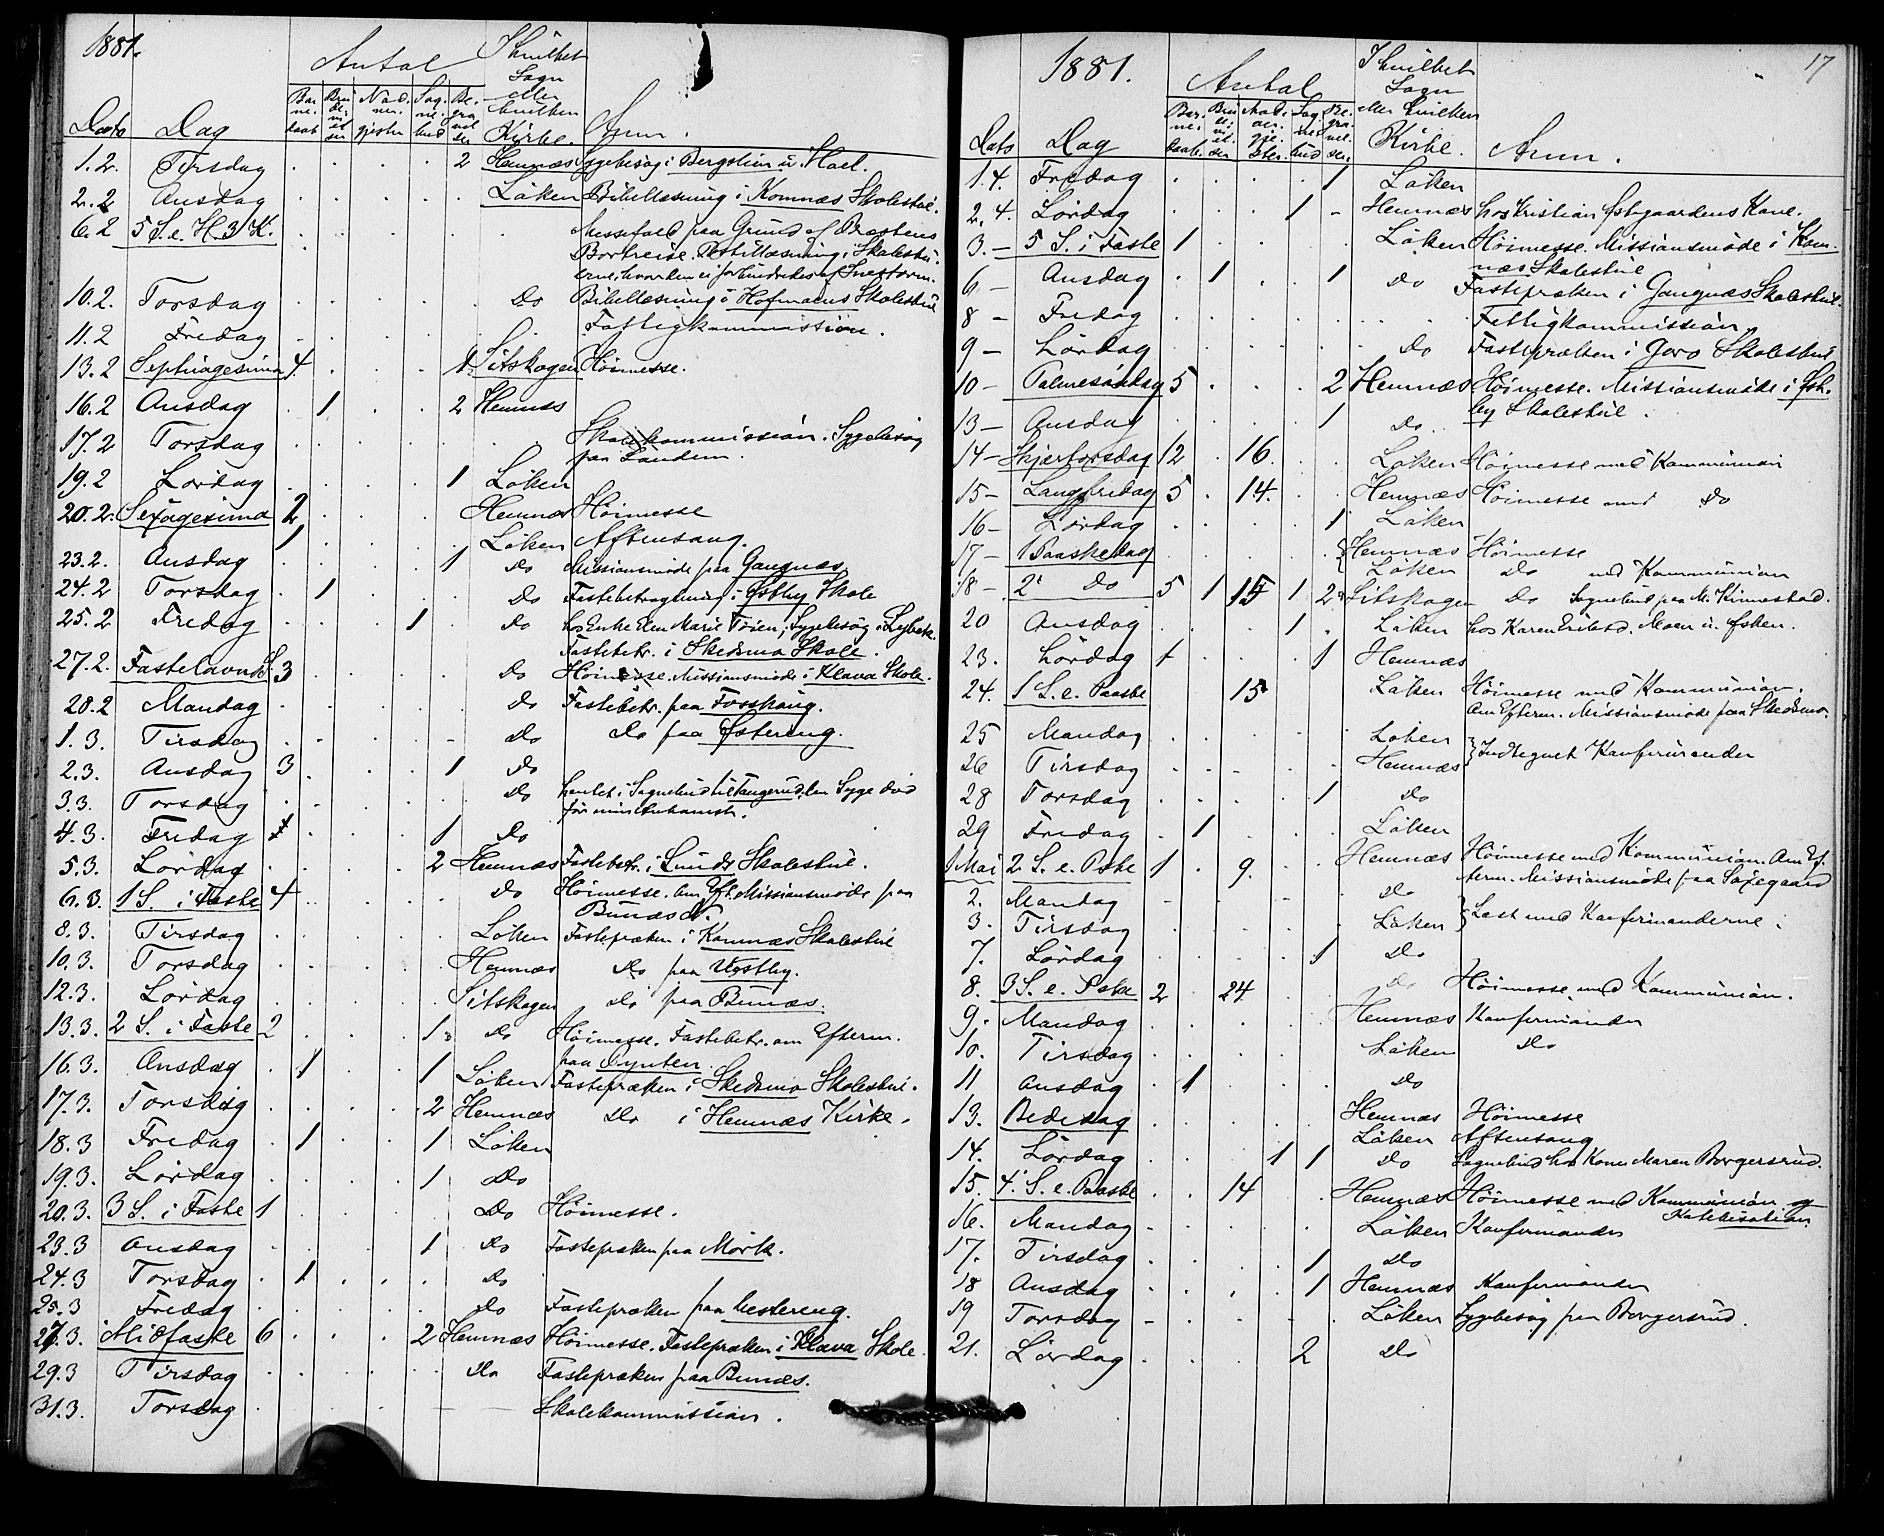 1881.
Antal
I hvilket
Sogn
eller
hvilken
Kirke.
Dato Dag Barnedaab Brudevielser Nadvergjester Sognebud Begravelser Anm.
1.2. Tirsdag . . . . 2 Hemnæs Sygebesøg i Bergstien u. Hael.
2.2 Onsdag . . . . . Løken Bibellæsning i Komnæs Skolestue.
6.2 5 S. e. H. 3 K. . . . . . Messefald paa Grund af Præstens
Bortreise. Postillæsning i Skolestu-
erne, hvor den ei forhindredes af Snestorm.
10.2. Torsdag . . . . Do Bibellæsning i Hofmoens Skolestue
11.2 Fredag . . . . . Fattigkommission.
13.2 Septuagesima 4. . . . 1. Sitskogen Høimesse.
16.2 Onsdag . 1 . . 2 Hemnæs
17.2 Torsdag . . . . . Skolekommission. Sygebesøg
paa Sandem.
19.2 Lørdag . . . . 1 Løken
20.2. Sexagesima 2 . . . . Hemnæs Høimesse
1 . . . . Løken Aftensang.
23.2. Onsdag . . . . 1 Do Missionsmøde paa Gangnæs.
24.2 Torsdag . 1 . . . Do Fastebetragtning i Østby Skole
25.2 Fredag . . . 1 . Do hos Enke Elen Marie Toien, Sygebesøg i Lybek.
Fastebetr. i Skedsmo Skole.
27.2. Fastelavns S. 3 . . . . Do Høimesse. Missionsmøde i Klava Skole.
28.2 Mandag . . . . . Do Fastebetr. paa Fosshaug.
1.3. Tirsdag . . . . . Do Do paa Østereng.
2.3. Onsdag 3 . . . 1 Do
3.3. Torsdag . . . . Do hentet i Sognebud til Tangerud, den Syge død
før min Ankomst.
4.3. Fredag 1 . . . 1 Do
5.3. Lørdag . . . . 2 Hemnæs Fastebetr. i Lunds Skolestue.
6.3. 1 S. i Faste 4 . . . . Do Høimesse. Om Eft. Missionsmøde paa
Bunæs N.
8.3. Tirsdag . . . . . Løken Fastepræken i Komnæs Skolestue
10.3. Torsdag . . . . . Hemnæs Do paa Vestby.
12.3. Lørdag . . . . . Sitskogen Do paa Bunæs.
13.3. 2 S. i Faste 2 . . . 1. Do Høimesse. Fastebetr. om Efterm.
paa Dynten.
16.3. Onsdag . 1 . . 1 Løken Fastepræken i Skedsmo Skolestue.
17.3. Torsdag . . . . 2 Hemnæs Do i Hemnæs Kirke.
18.3 Fredag . 1 . . 1 Løken
19.3. Lørdag . . . . 1 Do
20.3. 3 S. i Faste 1 . . . . Do Høimesse.
23.3 Onsdag . . . . 1 Do Fastepræken paa Mørk.
24.3 Torsdag . 1 . . . Do
25.3 Fredag . . . . . Do Fastepræken paa Lestereng.
27.3. Midfaste 6 . . . 2 Hemnæs Høimesse. Fastepræken i Klava Skole.
29.3 Tirsdag . . . . . Do Fastepræken paa Bunæs.
31.3. Torsdag . . . . Skolekommission.
17
1881.
Antal
I hvilket
Sogn
eller hvilken
Kirke.
Dato Dag Barnedaab. Brudevielser Nadvergjester. Sognebud Begravelser. Anm.
1.4. Fredag . . . . 1 Løken
2.4. Lørdag . . . 1 - Hemnæs hos Kristian Østbygaardens Kone.
3 - 5 S. i Faste 1 . . . . Løken Høimesse. Missionsmøde i Kom-
næs Skolestue
6 - Onsdag . 1 . . 1 Do Fastepræken i Gangnæs Skolestue.
8 - Fredag . . . . . . . Fattigkommission
9 - Lørdag . . . . . Do Fastepræken i Joro Skolestue
10 - Palmesøndag 5 . . . 2 Hemnæs Høimesse. Missionsmøde i Øst-
by Skolestue.
13 - Onsdag . . . . 1 Do.
14 - Skjærtorsdag 12 . 16. . . Løken Høimesse med Kommunion
15 - Langfredag 5 . 14. . . Hemnæs Høimesse med Do
16 - Lørdag . . . . 1 Løken
17 - 1 Paaskedag . . . . . { Hemnæs Høimesse
Løken Do med Kommunion
18 - 2' Do 5 1 15 1 2 Sitskogen Do Sognebud paa M. Kinnestad.
20 Onsdag . . . 1 . Løken hos Karen Eriksd. Moen u. Østen.
23. Lørdag 1 . . . 1 Hemnæs
24. 1 S. e. Paaske 15 Løken Høimesse med Kommunion.
Om Efterm. Missionsmøde paa Skedsmo.
25 Mandag . . . . . Løken } Indtegnet Konfirmander
26 Tirsdag . . . . . Hemnæs
28 Torsdag . . . . 1 Do
29 Fredag . 1 . . . Løken
1 Mai 2 S. e. Paske 1 . 9. . Hemnæs Høimesse med Kommunion. Om Ef-
term. Missionsmøde paa Soxegaard
2. Mandag - - - - - Do } Læst med Konfirmanderne.
3. Tirsdag . . . . . Løken
7. Lørdag . . . . 1 Do
8. 3 S. e. Paske 2 . 24 . . Do Høimesse med Kommunion.
9. Mandag . . . . . Hemnæs Konfirmander
10. Tirsdag . . . . . Løken Do
11 Onsdag . 1 . . . Do
13. Bededag Hemnæs Høimesse
Løken Aftensang
14. Lørdag . . . 1 1 Do Sognebud hos Kone Maren Borgersrud.
15. 4. S. e. Paaske . . 14 . Hemnæs Høimesse med Kommunion og
Katekisation
16. Mandag - . . . . Løken Konfirmander
17. Tirsdag . . . . 1 Do
18 Onsdag . . . . 1 Hemnæs Konfirmander
19 Torsdag - . . - . Løken Sygebesøg paa Borgersrud.
21. Lørdag . . . . 2 Do